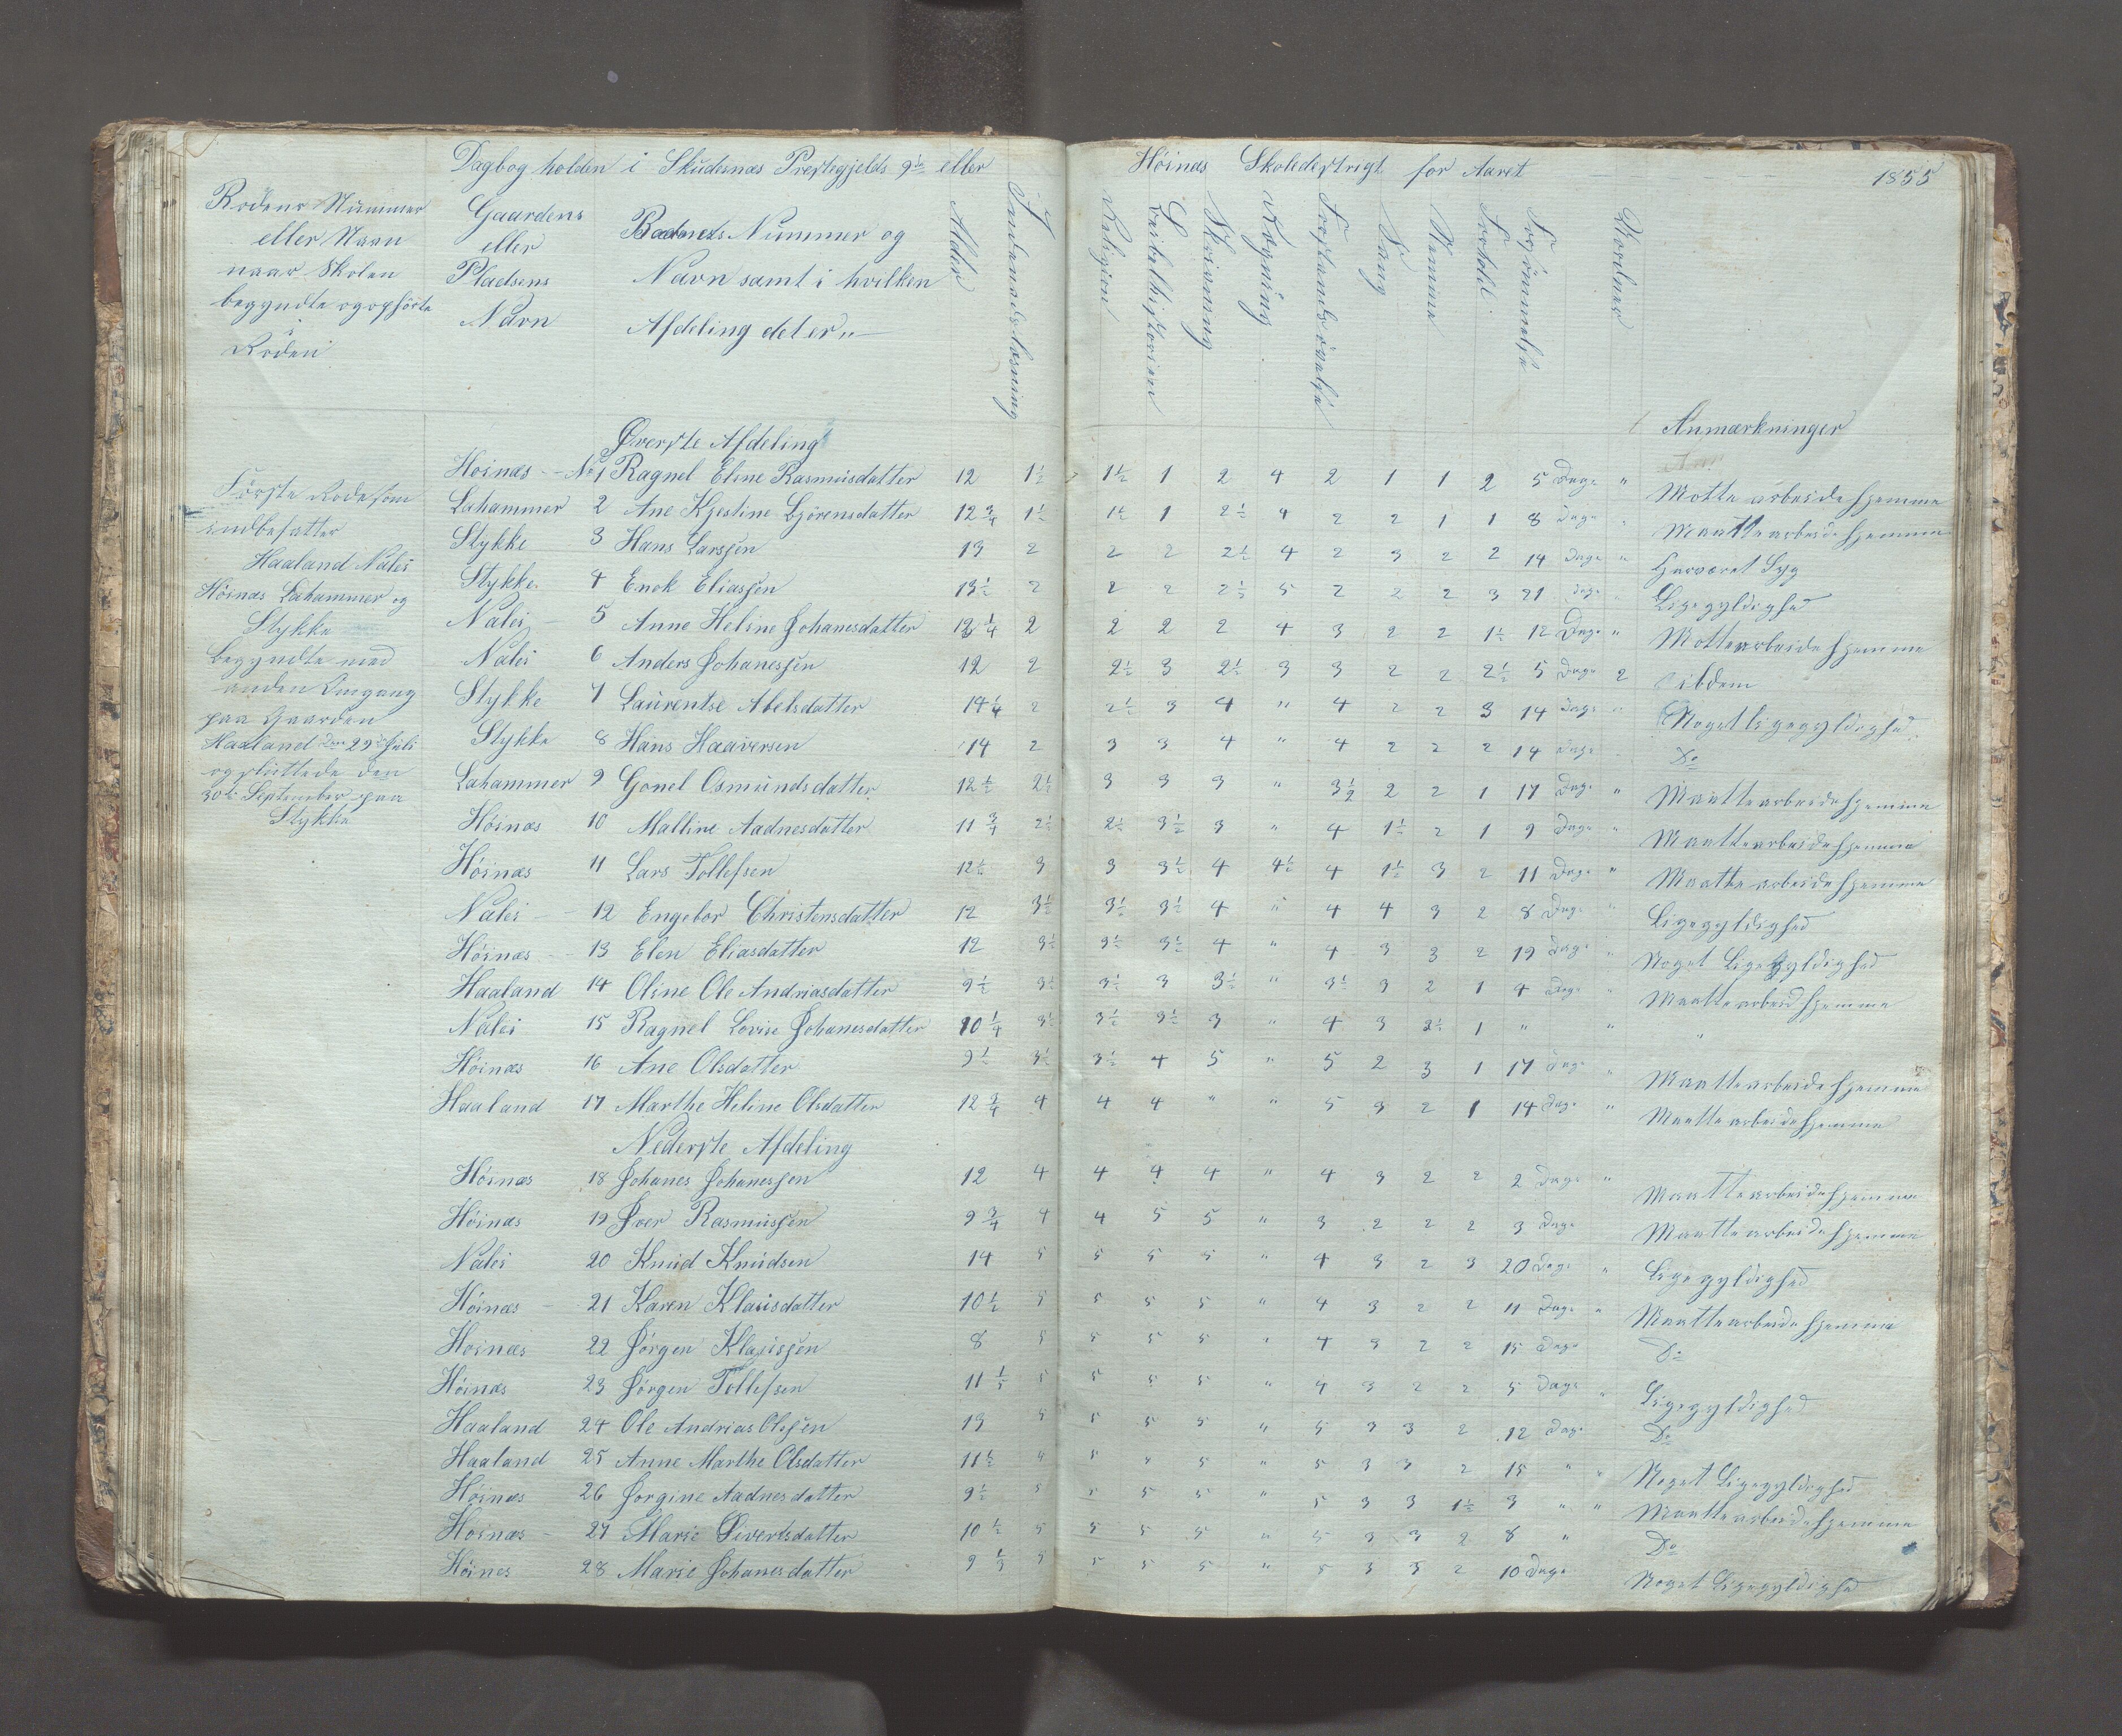 Dagbog holden i Skudesnæs Prestegjelds 9de eller Höinæs Skoledestrigt for Aaret 1855
Rodens Nummer eller Navn naar Skolen begyndte og ophörte i Roden
Gaardens eller Pladsens Navn
Barnets Nummer og Navn samt i hvilken Afdeling det er
Alder
Indenadslæsning
Religion
Bibelhistorien
Skrivning
Regning
Forstands övelse
Sang
Nemme
Forhold
Forsömmelse
Uordner
Anmærkninger
Förste Rode som
indbefatter
Haaland Nalei
Höinæs Lahammer og
Stykke
begyndte med
anden Omgang
paa Gaarden
Haaland den 29de Juli
og sluttede den
30te September paa
Stykke
Øverste Afdeling
Hoinæs No 1 Ragnel Eline Rasmusdatter 12 1½ 1½ 1 2 4 2 1 1 2 5 Dage " Motte arbeide hjemme
Lahammer 2 Ane Kjestine Björensdatter 12¾ 1½ 1½ 1 2½ 4 2 2 1 1 8 Dage " Maatte arbeide hjemme
Stykke 3 Hans Larssen 13 2 2 2 2½ 4 2 3 2 2 14 Dage " Har været Syg
Stykke 4 Enok Eliassen 13½ 2 2 2 2½ 5 2 2 2 3 21 Dage " Ligegyldighed
Nalei 5 Anne Heline Johanesdatter 12¼ 2 2 2 2 4 3 2 2 1½ 12 Dage " Motte arbeide hjemme
Nalei 6 Anders Johanessen 12 2 2½ 3 2½ 3 3 2 2 2½ 5 Dage 2 ibdem
Stykke 7 Laurentse Abelsdatter 14¼ 2 2½ 3 4 " 4 2 2 3 14 Dage " Noget ligegyldighed
Stykke 8 Hans Haaversen 14 2 3 3 4 " 4 2 2 2 14 Dage Do
Lahammer 9 Gonel Osmundsdatter 12½ 2½ 3 3 3 " 3½ 2 2 1 17 Dage " Maatte arbeide hjemme
Höinæs 10 Malline Aadnesdatter 11¾ 2½ 2½ 3½ 3 " 4 1½ 2 1 9 Dage " Maatte arbeide hjemme
Höinæs 11 Lars Tollefsen 12½ 3 3 3½ 4 4½ 4 1½ 3 2 11 Dage " Maatte arbeide hjemme
Nalei 12 Engebor Christensdatter 12 3½ 3½ 3½ 4 " 4 4 3 2 8 Dage " Ligegyldighed
Höinæs 13 Elen Eliasdatter 12 3½ 3½ 3½ 4 " 4 3 3 2 19 Dage " Noget Ligegyldighed
Haaland 14 Oline Ole Andriasdatter 9½ 3½ 3½ 3 3½ " 3½ 3 2 1 4 Dage " Maatte arbeid hjemme
Nalei 15 Ragnel Lovise Johanesdatter 10¼ 3½ 3½ 3½ 3 " 4 3 2½ 1 " " "
Höinæs 16 Ane Olsdatter 9½ 3½ 3½ 4 5 " 5 2 3 1 17 Dage " Maatte arbeide hjemme
Haaland 17 Marthe Heline Olsdatter 12¾ 4 4 4 " " 5 3 2 1 14 Dage " Maatte arbeide hjemme
Nederste Afdeling
Höinæs 18 Johanes Johanessen 12 4 4 4 4 " 4 3 2 2 2 Dage " Maatte arbeide hjemme
Höinæs 19 Iver Rasmussen 9¾ 4 4 5 5 " 3 2 2 2 3 Dage Maatte arbeide hjemme
Nalei 20 Knud Knudsen 14 5 5 5 5 " 4 3 2 3 20 Dage " Ligegyldighed
Höinæs 21 Karen Klausdatter 10½ 5 5 5 5 " 4 3 2 2 11 Dage " Maatte arbeide hjemme
Hoinæs 22 Jörgen Klaussen 8 5 5 5 5 " 4 3 2 2 15 Dage Do
Höinæs 23 Jörgen Tollefsen 11½ 5 5 5 5 " 4 3 2 2 5 Dage " Ligegyldighed
Haaland 24 Ole Andrias Olssen 13 5 5 5 5 " 5 3 3 2 12 Dage Do
Haaland 25 Anne Marthe Olsdatter 11½ 5 5 " 5 " 5 3 3 2 15 " " Noget Ligegyldighed
Höinæs 26 Jorgine Aadnesdatter 9½ 5 5 5 5 " 5 3 3 1½ 3 " " Maatte arbeide hjemme
Hoinæs 27 Marie Sivertsdatter 10½ 5 5 5 5 " 5 3 3 2 8 " Do
Höines 28 Marie Johanesdatter 9½ 5 5 5 5 " 5 3 3 2 10 Dage Noget Ligegyldighed